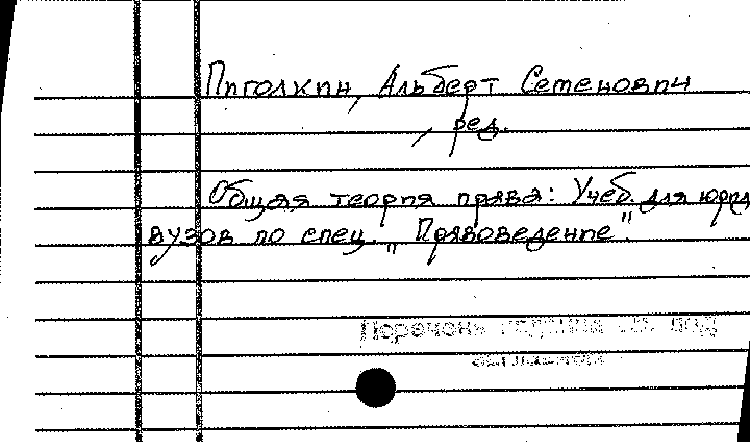 Пиголкин, Альберт Семенович
, ред.
Общая теория права: Учеб. для юрид
вузов по спец. „Правоведение".
Перечень изданий см. под